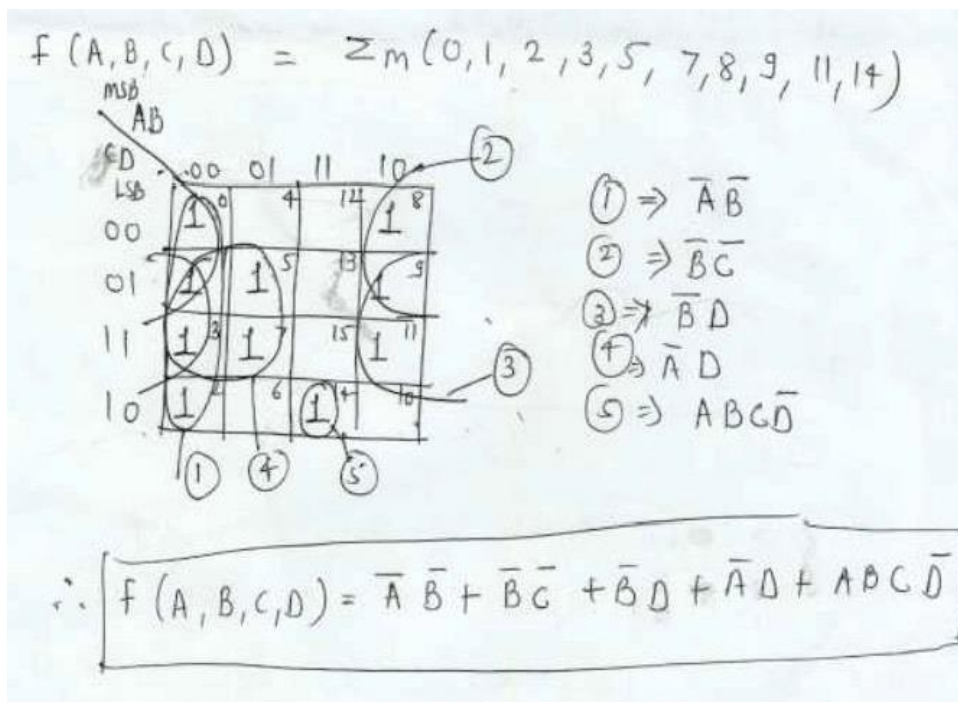 f (A, B, C, D) = Σm (0, 1, 2, 3, 5, 7, 8, 9, 11, 14)
MSB
AB
CD 00 01 11 10 ②
LSB
00 1 0 4 12 1 8
01 1 1 5 13 1 9
11 1 3 1 7 15 1 11
10 1 2 6 1 14 10
③
① ④ ⑤
① ⇒ A̅ B̅
② ⇒ B̅ C̅
③ ⇒ B̅ D
④ ⇒ A̅ D
⑤ ⇒ A B C D̅
∴ f (A, B, C, D) = A̅ B̅ + B̅ C̅ + B̅ D + A̅ D + A B C D̅